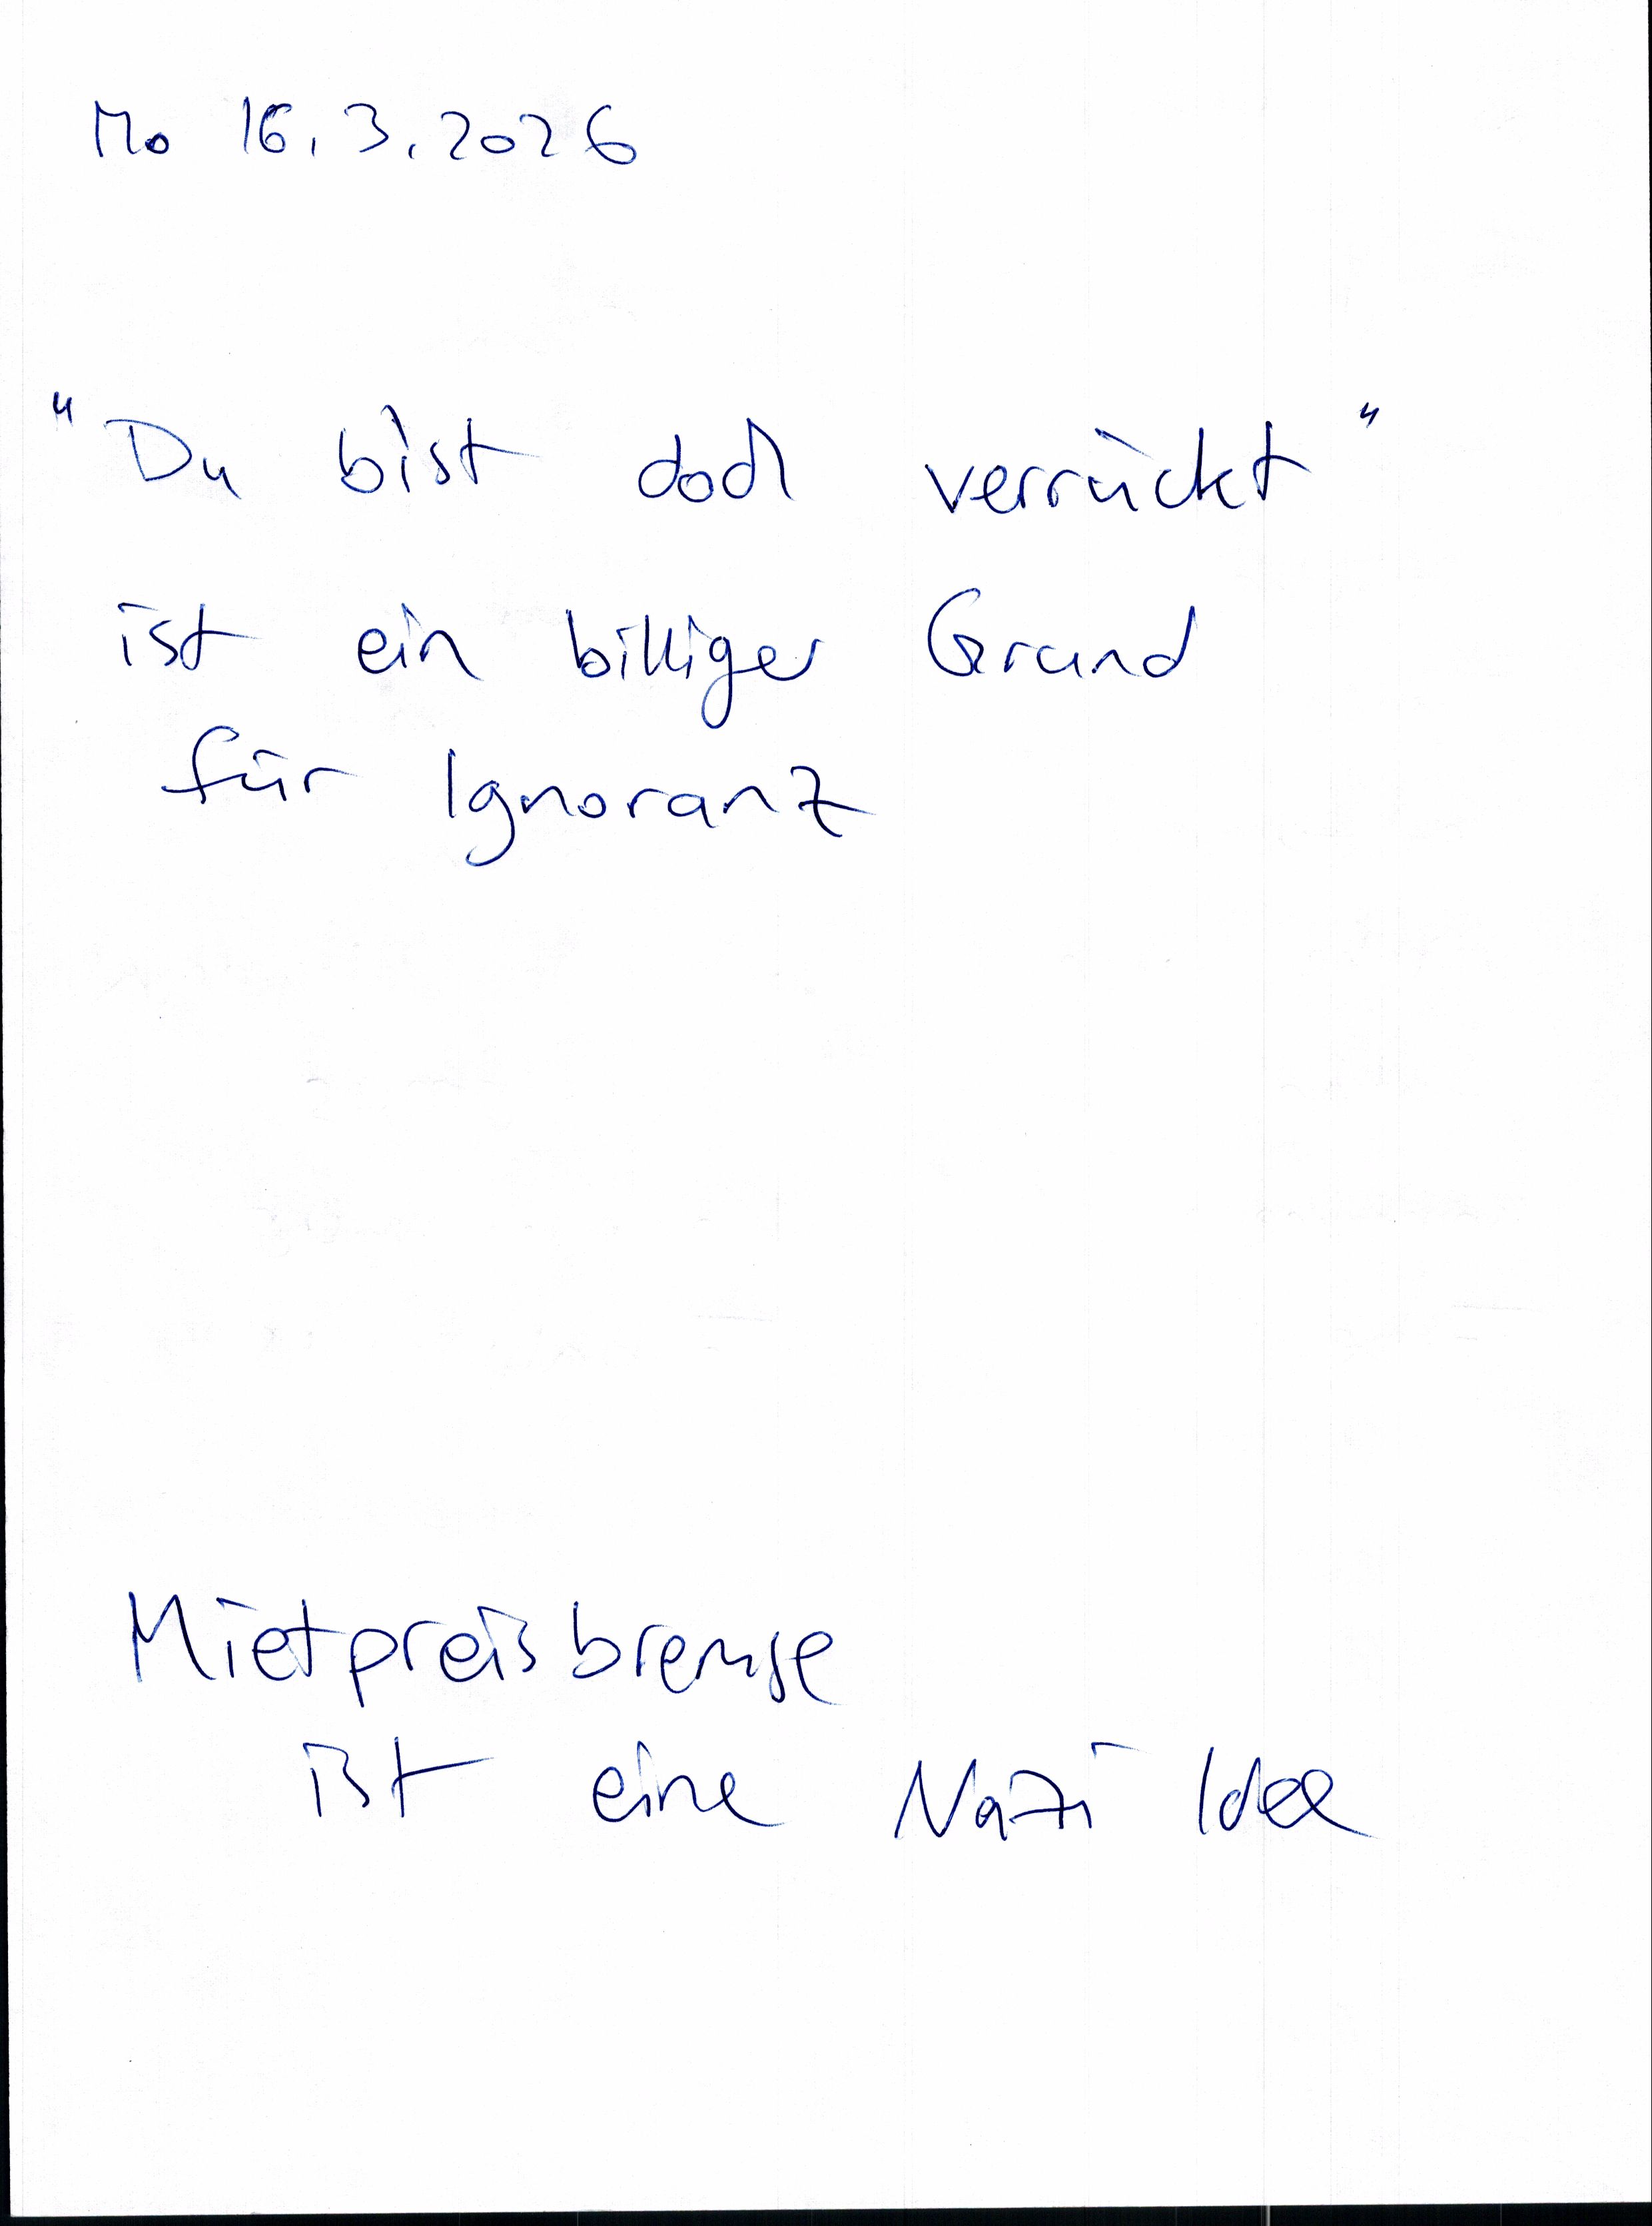 Mo 16.3.2026
"Du bist doch verrückt"
ist ein billiger Grund
für Ignoranz
Mietpreisbremse
ist eine Nazi Idee